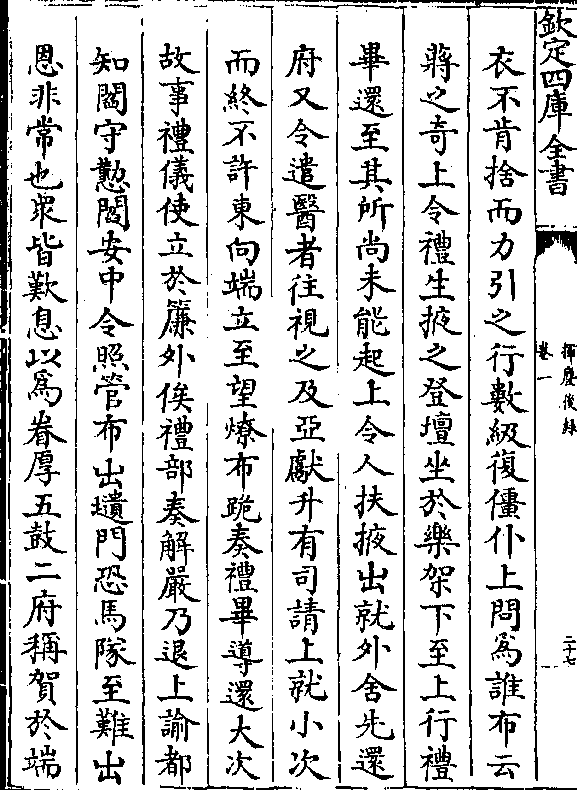 欽定四庫全書
揮麈後録
卷一
二十七
衣不肯捨而力引之行數級復僵仆上問爲誰布云
蔣之奇上令禮生掖之登壇坐於樂架下至上行禮
畢還至其所尚未能起上令人扶掖出就外舍先還
府又令遣醫者往視之及亞獻升有司請上就小次
而終不許東向端立至望燎布跪奏禮畢導還大次
故事禮儀使立於簾外俟禮部奏解嚴乃退上諭都
知閻守懃閻安中令照管布出壝門恐馬隊至難出
恩非常也衆皆歎息以爲眷厚五鼓二府稱賀於端